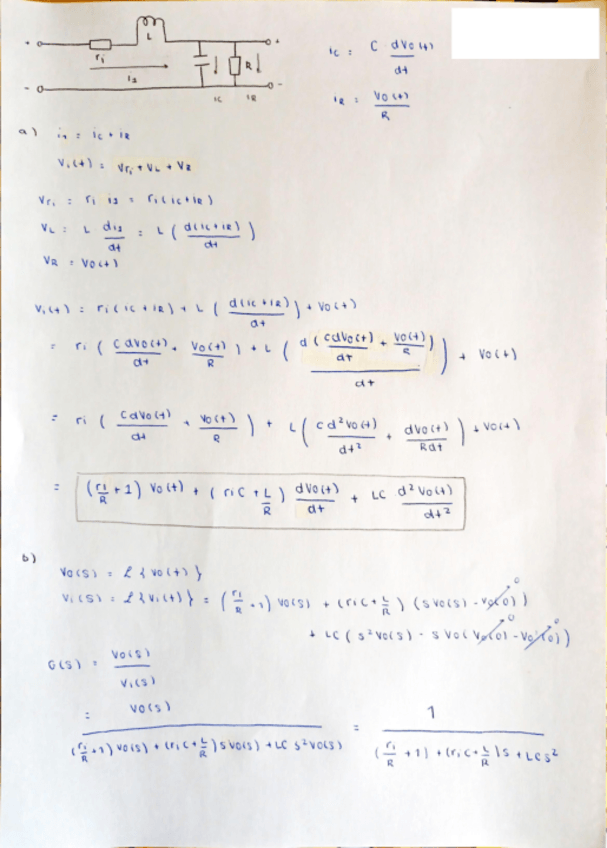 + ri L + ic = C dVo(t)/dt
i1 ic R iR
- - iR = Vo(t)/R
a) i1 = ic + iR
Vi(t) = Vri + VL + VR
Vri = ri i1 = ri(ic+iR)
VL = L di1/dt = L ( d(ic+iR)/dt )
VR = Vo(t)
Vi(t) = ri(ic+iR) + L ( d(ic+iR)/dt ) + Vo(t)
= ri ( C dVo(t)/dt + Vo(t)/R ) + L ( d ( C dVo(t)/dt + Vo(t)/R ) / dt ) + Vo(t)
= ri ( C dVo(t)/dt + Vo(t)/R ) + L ( C d²Vo(t)/dt² + dVo(t)/Rdt ) + Vo(t)
= (ri/R + 1) Vo(t) + ( riC + L/R ) dVo(t)/dt + LC d²Vo(t)/dt²
b)
Vo(s) = ℒ{Vo(t)}
Vi(s) = ℒ{Vi(t)} = (ri/R + 1) Vo(s) + (riC + L/R) (sVo(s) - Vo(0)) 0
+ LC ( s²Vo(s) - sVo( Vo(0) - Vo'(0) ) 0 0
G(s) = Vo(s)/Vi(s)
= Vo(s) / (ri/R + 1) Vo(s) + (riC + L/R) sVo(s) + LC s²Vo(s) = 1 / (ri/R + 1) + (riC + L/R)s + LCs²